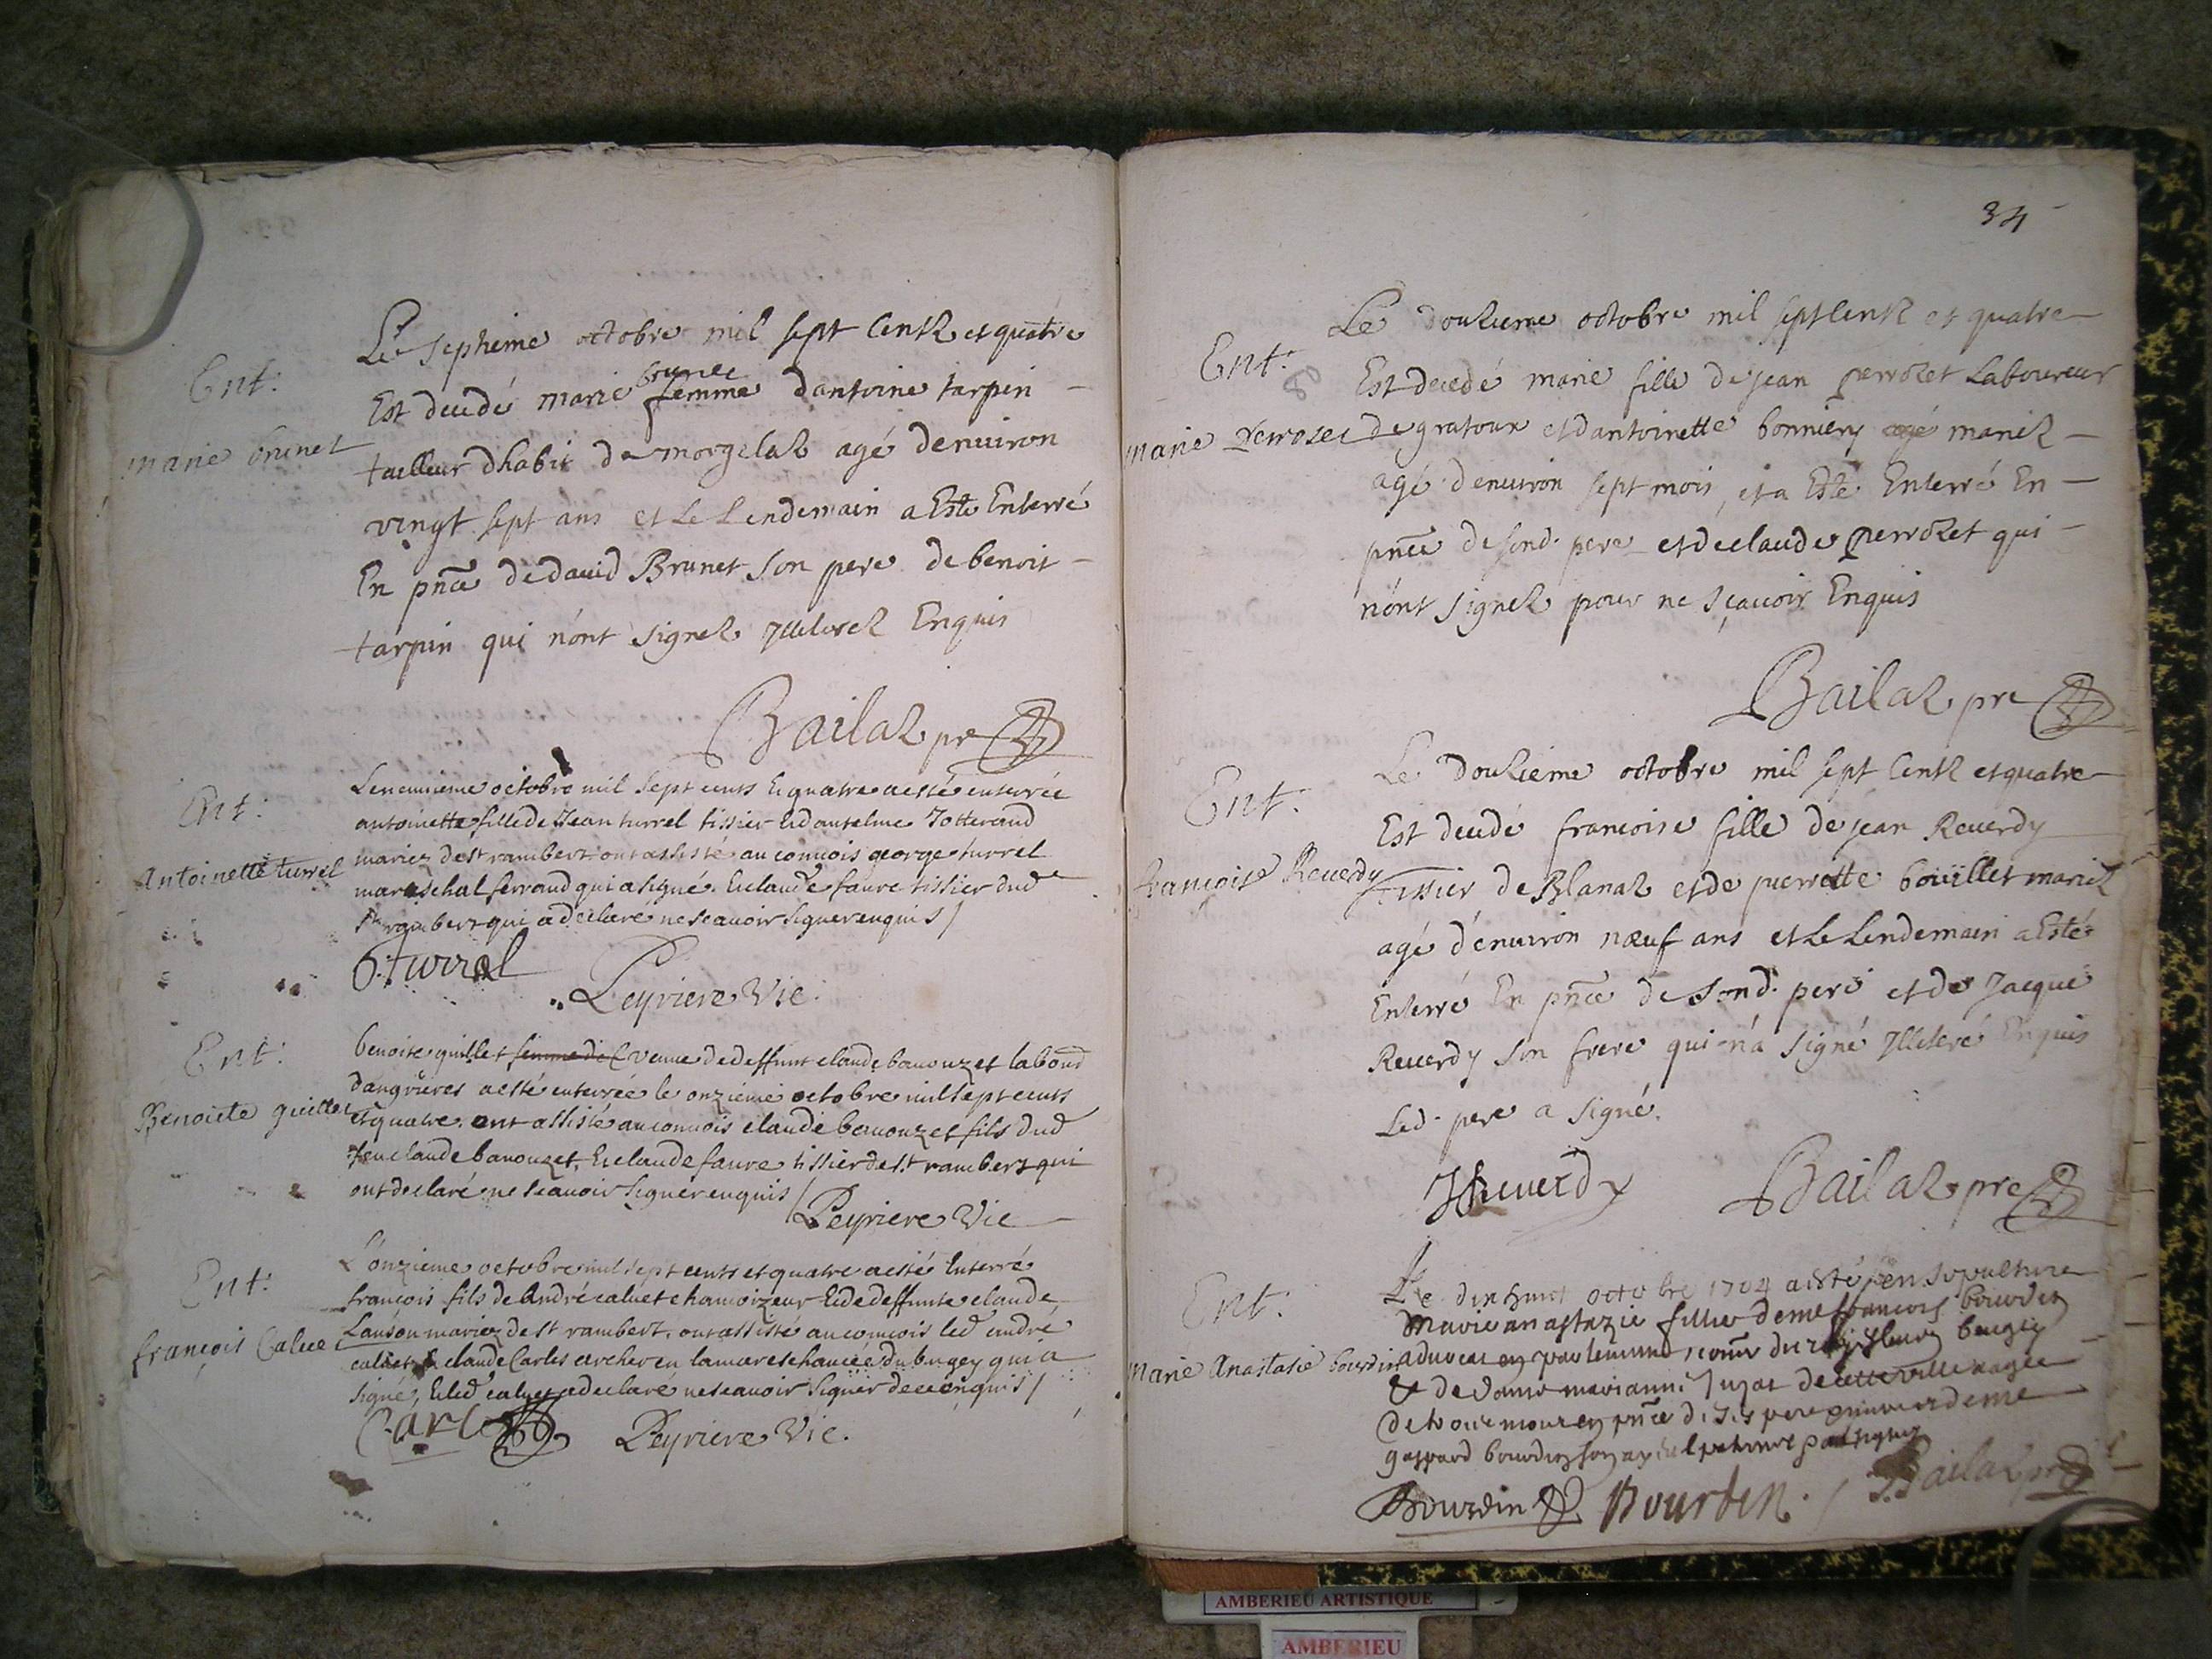 Ent:
marie brunet
Le septieme octobre mil sept centz et quatre
Est decedé marie brunet femme dantoine tarpin
tailleur dhabit de morgelaz agé denuiron
vingt sept ans et Le Lendemain a Esté Enterré
En pnce de dauid Brunet son pere de benoit
tarpin qui n'ont signez Illeterez Enquis
Bailaz pre
Ent:
Antoinette turrel
Le neuuieme octobre mil sept cents & quatre a esté enterrée
antoinette fille de Jean turrel tissier & dantelme Jotterand
mariez de st rambert ont assisté au conuois george turrel
mareschal ferrand qui a signé. & claude faure tissier dud
st rambert qui a declaré ne scauoir signer enquis /
G. turrel
Peyriere Vic.
Ent:
Benoite guillet
benoite guillet femme de veuue de deffunt claude bauouzet labour
dangrieres a esté enterrée le onzieme octobre mil sept cents
et quatre. ont assisté au conuois claude bauouzet fils dud
feu claude bauouzet, & claude faure tissier de st rambert qui
ont declaré ne scauoir signer enquis /
Peyriere Vic
Ent:
françois Caluet
L'onzieme octobre mil sept cents et quatre a esté Enterré
françois fils de André caluet chamoizeur & de deffunte claude
Lanson mariez de st rambert, ont assisté au conuois led andré
caluet & claude Carles archer en la mareschaucée du bugey qui a
signé, & led caluet a declaré ne scauoir signer de ce enquis /
Carles
Peyriere Vic.
34
Ent:
marie Perrozet
Le douzieme octobre mil sept centz et quatre
Est decedé marie fille de jean perrozet Laboureur
de gratoux et dantoinette bonniery agé mariez
agé denuiron sept mois, et a Esté Enterré En
pnce de sond. pere et de claude perrozet qui
n'ont signez pour ne sçauoir Enquis
Bailaz pre
Ent.
françoise Reuerdy
Le douzieme octobre mil sept centz et quatre
Est decedé francoise fille de jean Reuerdy
tissier de Blanaz et de pierrette boüillet mariez
agé d'enuiron nœuf ans et Le Lendemain a Esté
Enterré En pnce de sond. pere et de Jacque
Reuerdy son frere qui n'a signé Illeteré Enquis
Led. pere a signé.
J Reuerdy
Bailaz pre
Ent:
marie Anastasie bourdin
Le dix huict octobre 1704 a esté en sepulture
marie anastazie fille de me françois bourdin
aduocat en parlement,
& de dame marianne Juzat de cette ville aagée
de en pnce de ses pere de me
gaspard bourdin son ayeul paternel
Bourdin
Bourdin.
Bailaz pre
AMBERIEU ARTISTIQUE
AMBERIEU